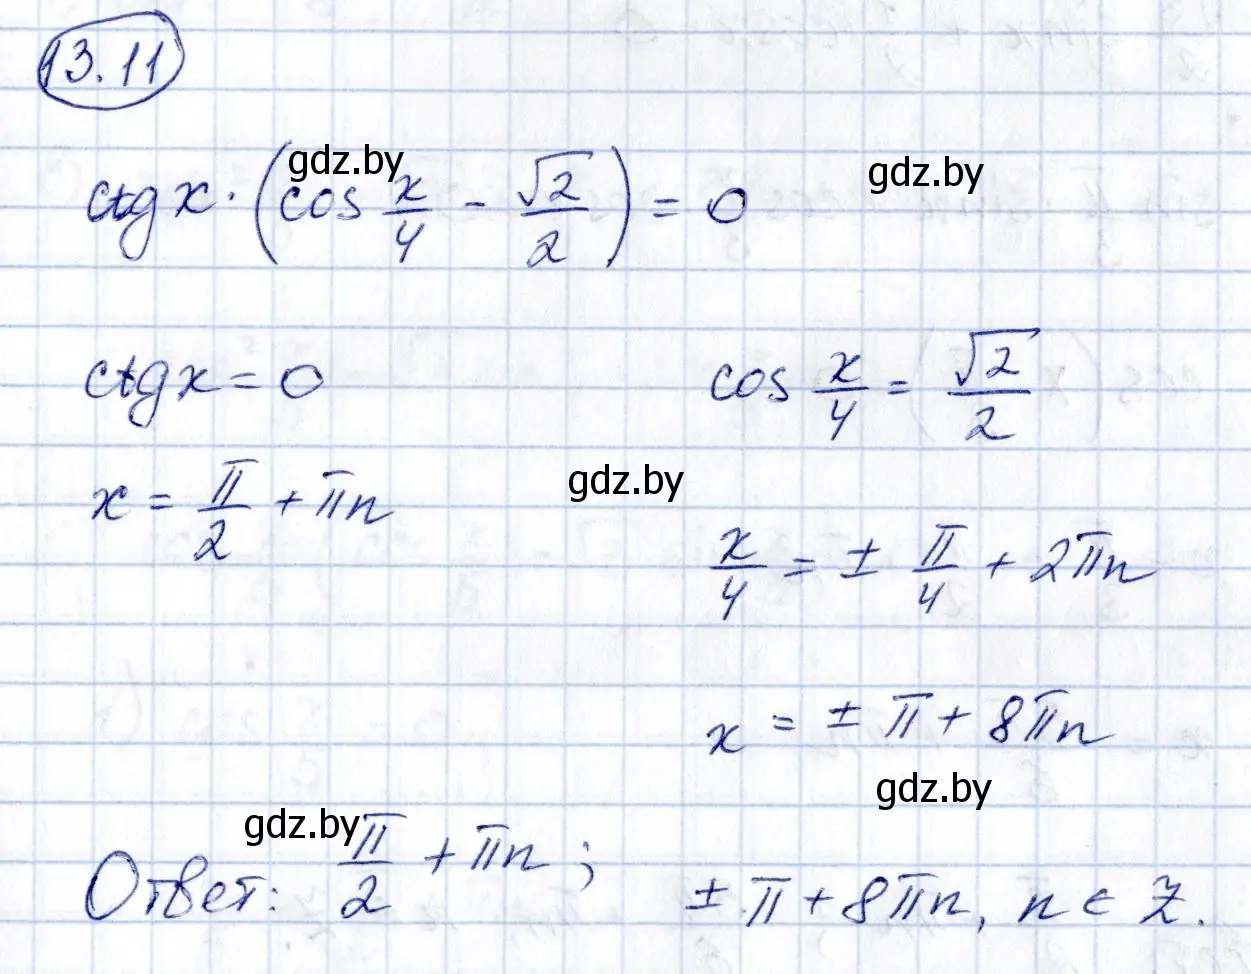 13.11
gdz.by
gdz.by
ctg x · (cos x/4 - √2/2) = 0
ctg x = 0
cos x/4 = √2/2
gdz.by
x = π/2 + πn
x/4 = ± π/4 + 2πn
x = ± π + 8πn
gdz.by
gdz.by
Ответ: π/2 + πn; ± π + 8πn, n ∈ Z.